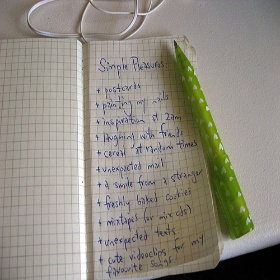 Simple Pleasures:
+ postcards
+ painting my nails
+ inspiration at 2am
+ laughing with friends
+ cereal at random times
+ unexpected mail
+ a smile from a stranger
+ freshly baked cookies
+ mixtapes (or mix cds)
+ unexpected texts
+ cute videoclips for my
favourite songs